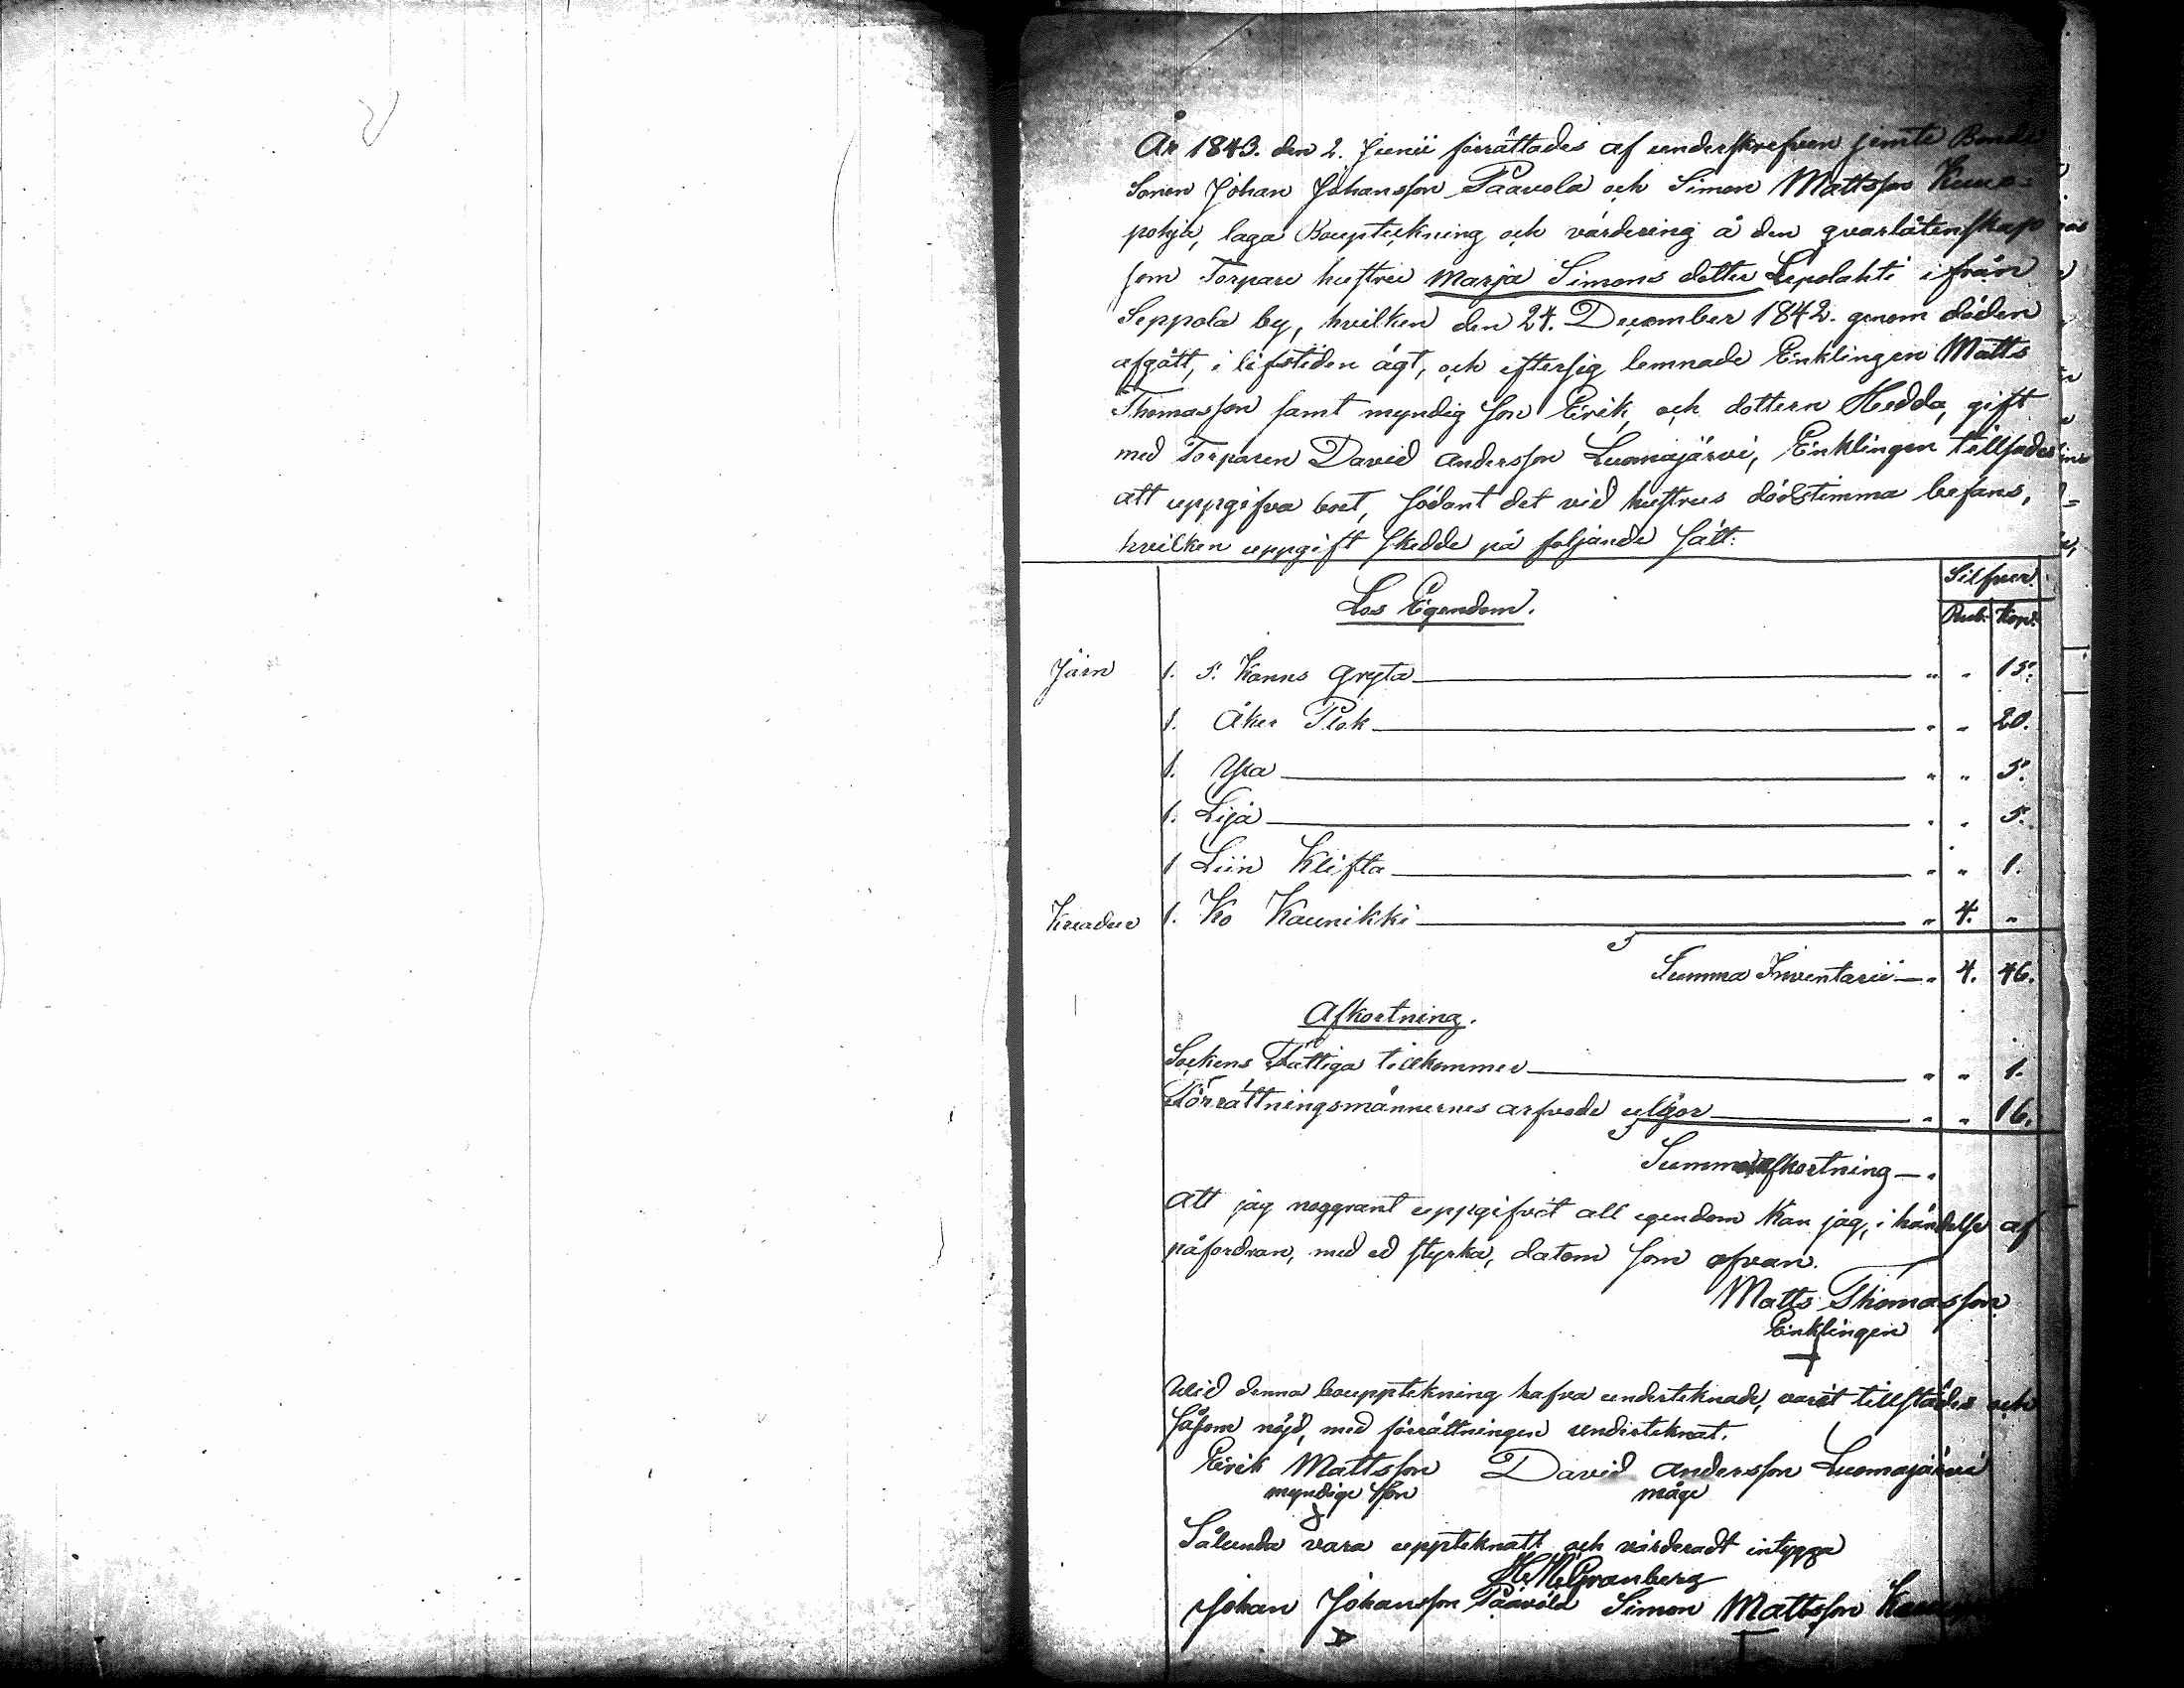 År 1843. den 2. Junii förrättades af underskrefven jemte Bonde
Sonen Johan Johansson Paavola och Simon Mattsson
pohja, laga Boupteckning och värdering å den qvarlåtenskap
som Torpare hustru Marja Simons dotter Lepolahti ifrån
Seppola by, hvilken den 24. December 1842. genom döden
afgått, i lifstiden ägt, och eftersig lemnade Enklingen Matts
Thomasson samt myndig son Erik, och dottern Hedda, gift
med Torparen David Andersson Luomajärvi, Enklingen tillsades
att uppgifva boet, sådant det vid hustrus dödstimma befans,
hvilken uppgift skedde på foljande sätt:
Silfver.
Los Egendom.
Rub. Kop.
Järn 1. 5. Kanns Gryta " " 15.
1. Åker Plok " " 20.
1. Yxa " " 5.
1. Lija " " 5.
1 Liin Klifta " " 1.
Kreatur 1. Ko Kaunikki " 4. "
Summa Inventarii " 4. 46.
Afkortning.
Sockens Fattiga tillkommer " " 1.
Förrättningsmännernes arfvode utgör " " 16.
Summa afkortning
Att jag noggrant uppgifvit all egendom kan jag, i händelse af
påfordran, med ed styrka, datom som ofvan.
Matts Thomasson
Enklingen
Wid denna bouppteckning hafva underteknade, varit tillstädes och
såsom nöjd, med förrättningen underteknat.
Erik Mattsson David Andersson Luomajärvi
myndige son måge
Sålunda vara uppteknatt och värderadt intyga
Granberg
Johan Johansson Paavola Simon Mattsson